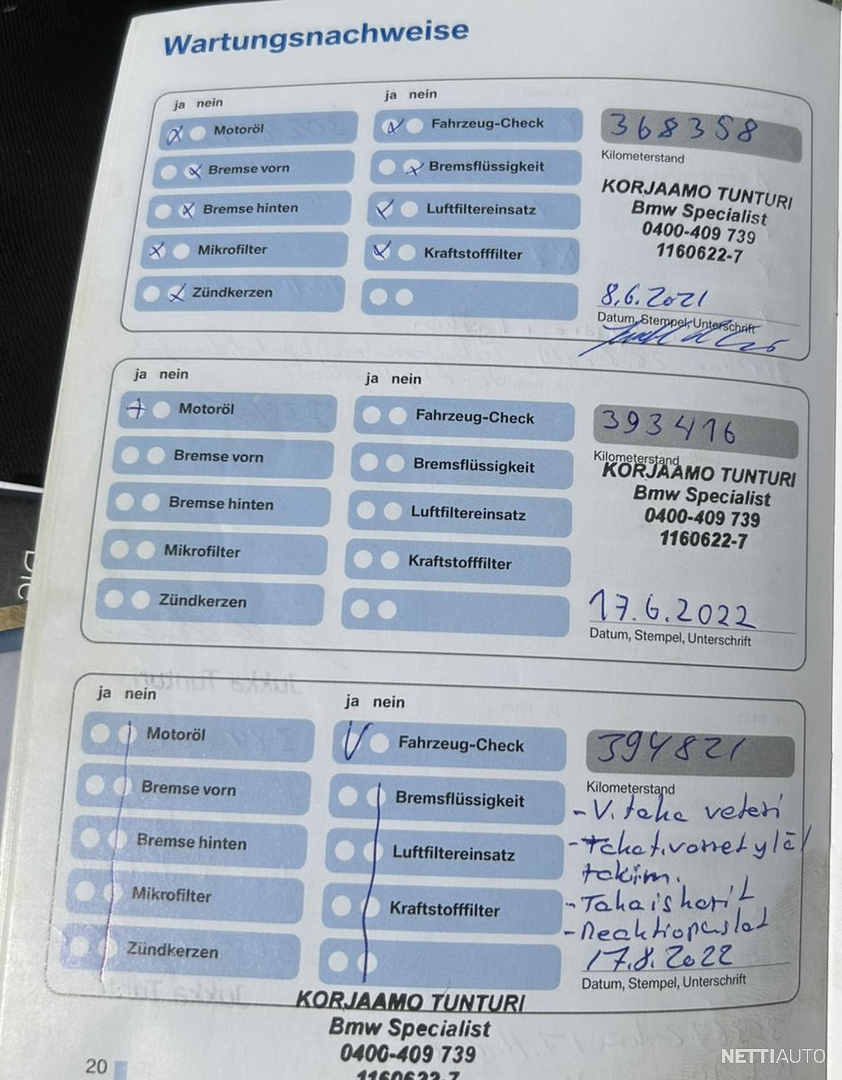 Wartungsnachweise
ja nein
Motoröl
Bremse vorn
Bremse hinten
Mikrofilter
Zündkerzen
ja nein
Fahrzeug-Check
Bremsflüssigkeit
Luftfiltereinsatz
Kraftstofffilter
368358
Kilometerstand
KORJAAMO TUNTURI
Bmw Specialist
0400-409 739
1160622-7
8.6.2021
Datum, Stempel, Unterschrift
ja nein
Motoröl
Bremse vorn
Bremse hinten
Mikrofilter
Zündkerzen
ja nein
Fahrzeug-Check
Bremsflüssigkeit
Luftfiltereinsatz
Kraftstofffilter
393416
Kilometerstand
KORJAAMO TUNTURI
Bmw Specialist
0400-409 739
1160622-7
17.6.2022
Datum, Stempel, Unterschrift
ja nein
Motoröl
Bremse vorn
Bremse hinten
Mikrofilter
Zündkerzen
ja nein
Fahrzeug-Check
Bremsflüssigkeit
Luftfiltereinsatz
Kraftstofffilter
394821
Kilometerstand
- V. taka veteri
- Takat.varret ylä/
takim.
- Takaiskarit
- Reaktiopuslat
17.8.2022
Datum, Stempel, Unterschrift
KORJAAMO TUNTURI
Bmw Specialist
0400-409 739
1160622-7
20
NETTIAUTO